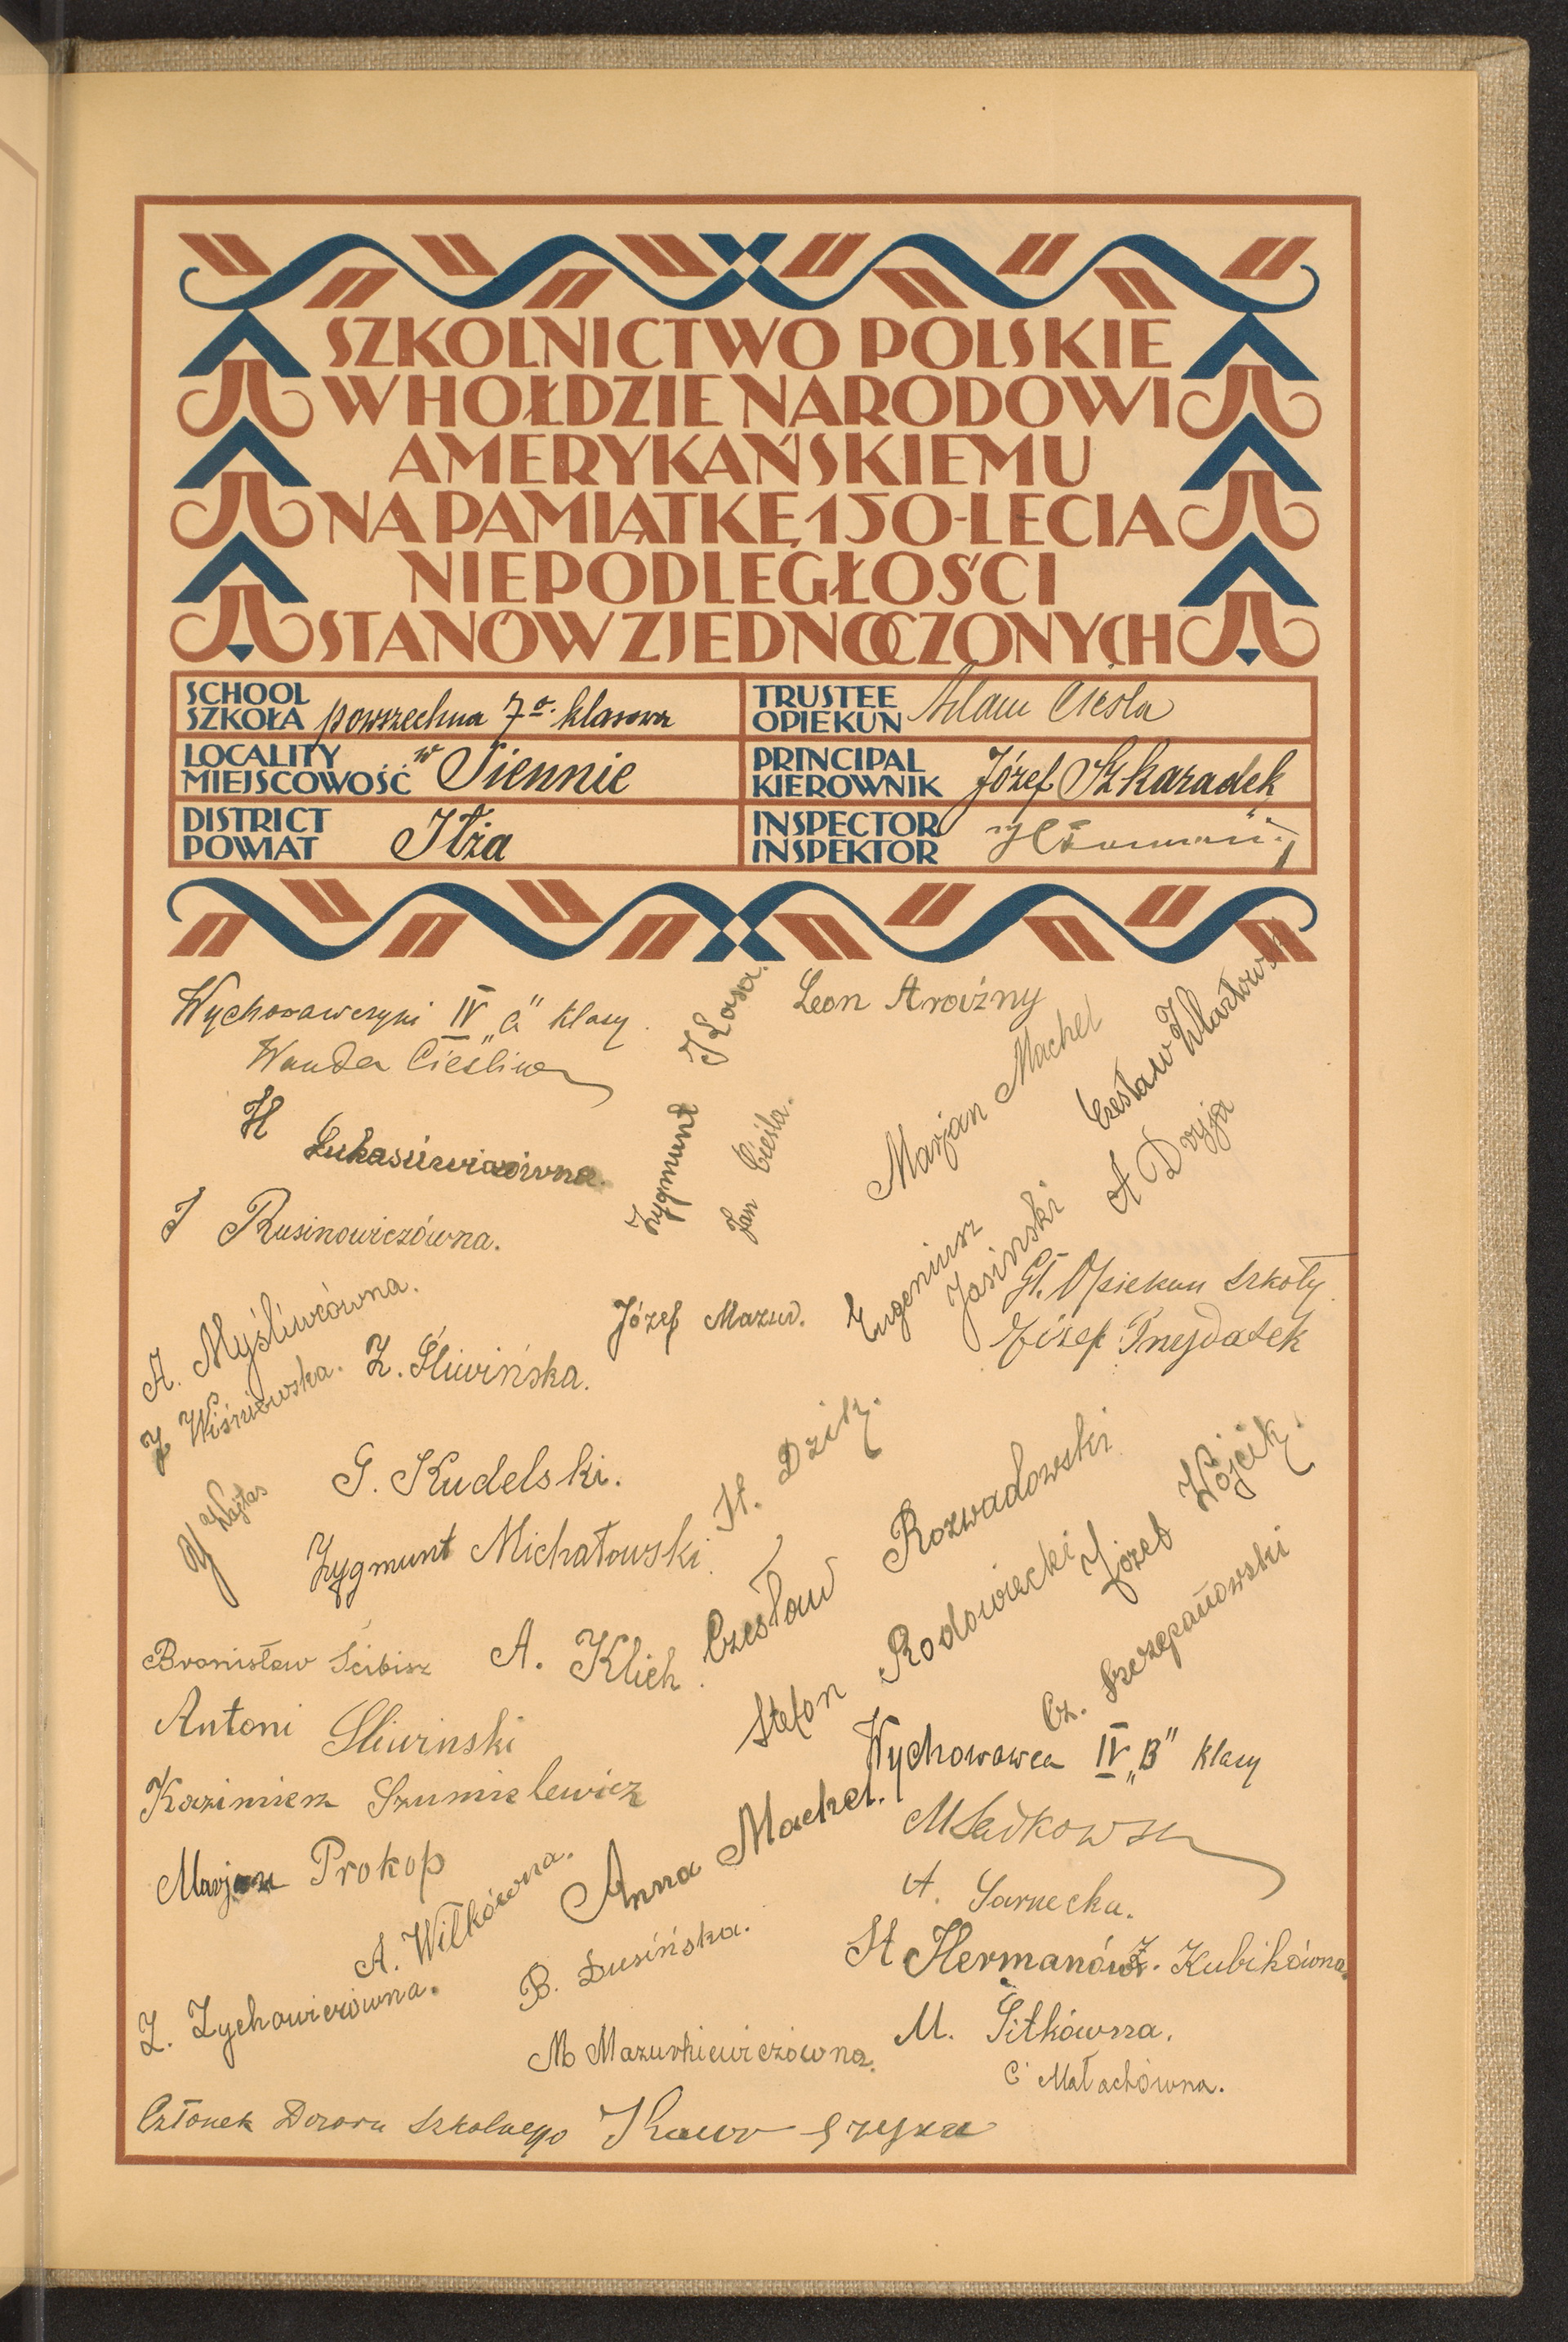 SZKOLNICTWO POLSKIE
W HOŁDZIE NARODOWI
AMERYKAŃSKIEMU
NA PAMIĄTKĘ 150-LECIA
NIEPODLEGŁOŚCI
STANÓW ZJEDNOCZONYCH
SCHOOL
SZKOŁA powszechna 7o. klasowa
TRUSTEE
OPIEKUN Adam Cieśla
LOCALITY
MIEJSCOWOŚĆ w Siennie
PRINCIPAL
KIEROWNIK Józef Szkaradek
DISTRICT
POWIAT Iłża
INSPECTOR
INSPEKTOR
Wychowawczyni IV „a" klasy.
Wanda Cieśliwa
H Łukasiewiczówna.
J Rusinowiczówna.
A. Myśliwcówna.
Z Wiśniowska.
Z. Śliwińska.
Zygmunt Kłosa.
Jan Cieśla.
Leon Arowźny
Marjan Machel
Czesław
A Dryja
Eugeniusz Jasinski
Józef Mazur.
Gł. Opiekun szkoły
Józef
Wajtas
G. Kudelski.
Zygmunt Michałowski.
St. Dzik.
Czesław Rozwadowski
Stefan Rodowiecki
Józef Wójcik.
Cz. Szczepanowski
Bronisław Ścibisz
A. Klich.
Antoni Sliwinski
Kazimierz Szumielewicz
Marjan Prokop
Wychowawca IV „B" klasy
A. Wilkówna.
Anna Machel.
A. Sarnecka.
St Hermanówa.
Z. Kubikówna.
B. Dusińska.
Z. Zychowiczówna.
M Mazurkiewiczówna.
M. Sitkówna.
C Małachówna.
Członek Dozoru szkolnego